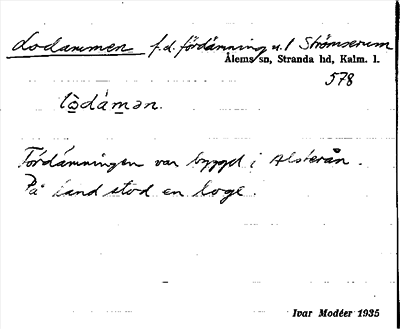 Lodammen f.d. fördämning u. 1 Strömserum
Ålems sn, Stranda hd, Kalm. l.
578
lo̲dám̲ən.
Fördämningen var byggd i Alsterån.
På land stod en loge.
Ivar Modéer 1935